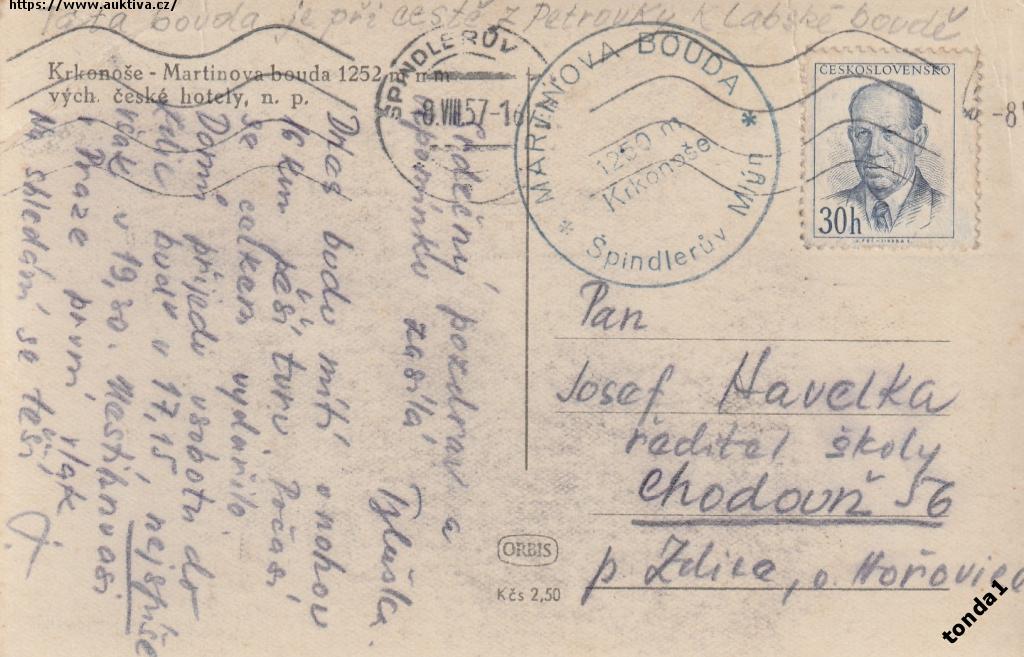 https://www.auktiva.cz/
Tato bouda je při cestě z Petrovky k Labské boudě
Krkonoše - Martinova bouda 1252 m n m
vých. české hotely, n. p.
ŠPINDLERŮV
-8.VIII.57-16
MARTINOVA BOUDA
1250 m
Krkonoše
* Špindlerův Mlýn *
-8
ČESKOSLOVENSKO
30h
Srdečný pozdrav a
vzpomínku zasílá
Dnes budu míti v nohou
16 km pěší turu. Počasí
se celkem vydařilo.
Domů přijedu v sobotu do
v 17,15 nejspíše
však v 19,30.
Praze první vlak
Na shledání se těší
J.
Pan
Josef Havelka
ředitel školy
Chodouň 56
p Zdice, o Hořovice
ORBIS
Kčs 2,50
tonda1